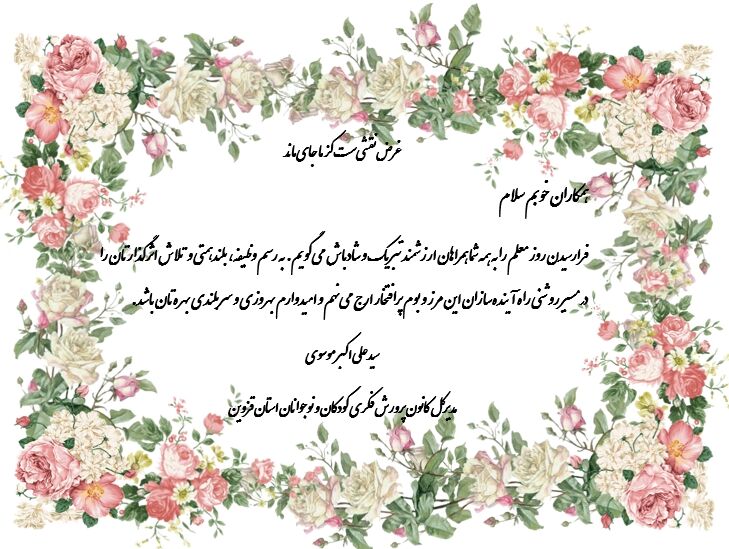 غرض نقشی ست کز ما جای ماند
همکاران خوبم سلام
فرارسیدن روز معلم را به همه شما همراهان ارزشمند تبریک و شادباش می گویم. به رسم وظیفه، بلندهمتی و تلاش اثرگذارتان را
در مسیر روشنی راه آینده سازان این مرز و بوم پرافتخار ارج می نهم و امیدوارم بهروزی و سربلندی بهره تان باشد.
سید علی اکبر موسوی
مدیرکل کانون پرورش فکری کودکان و نوجوانان استان قزوین